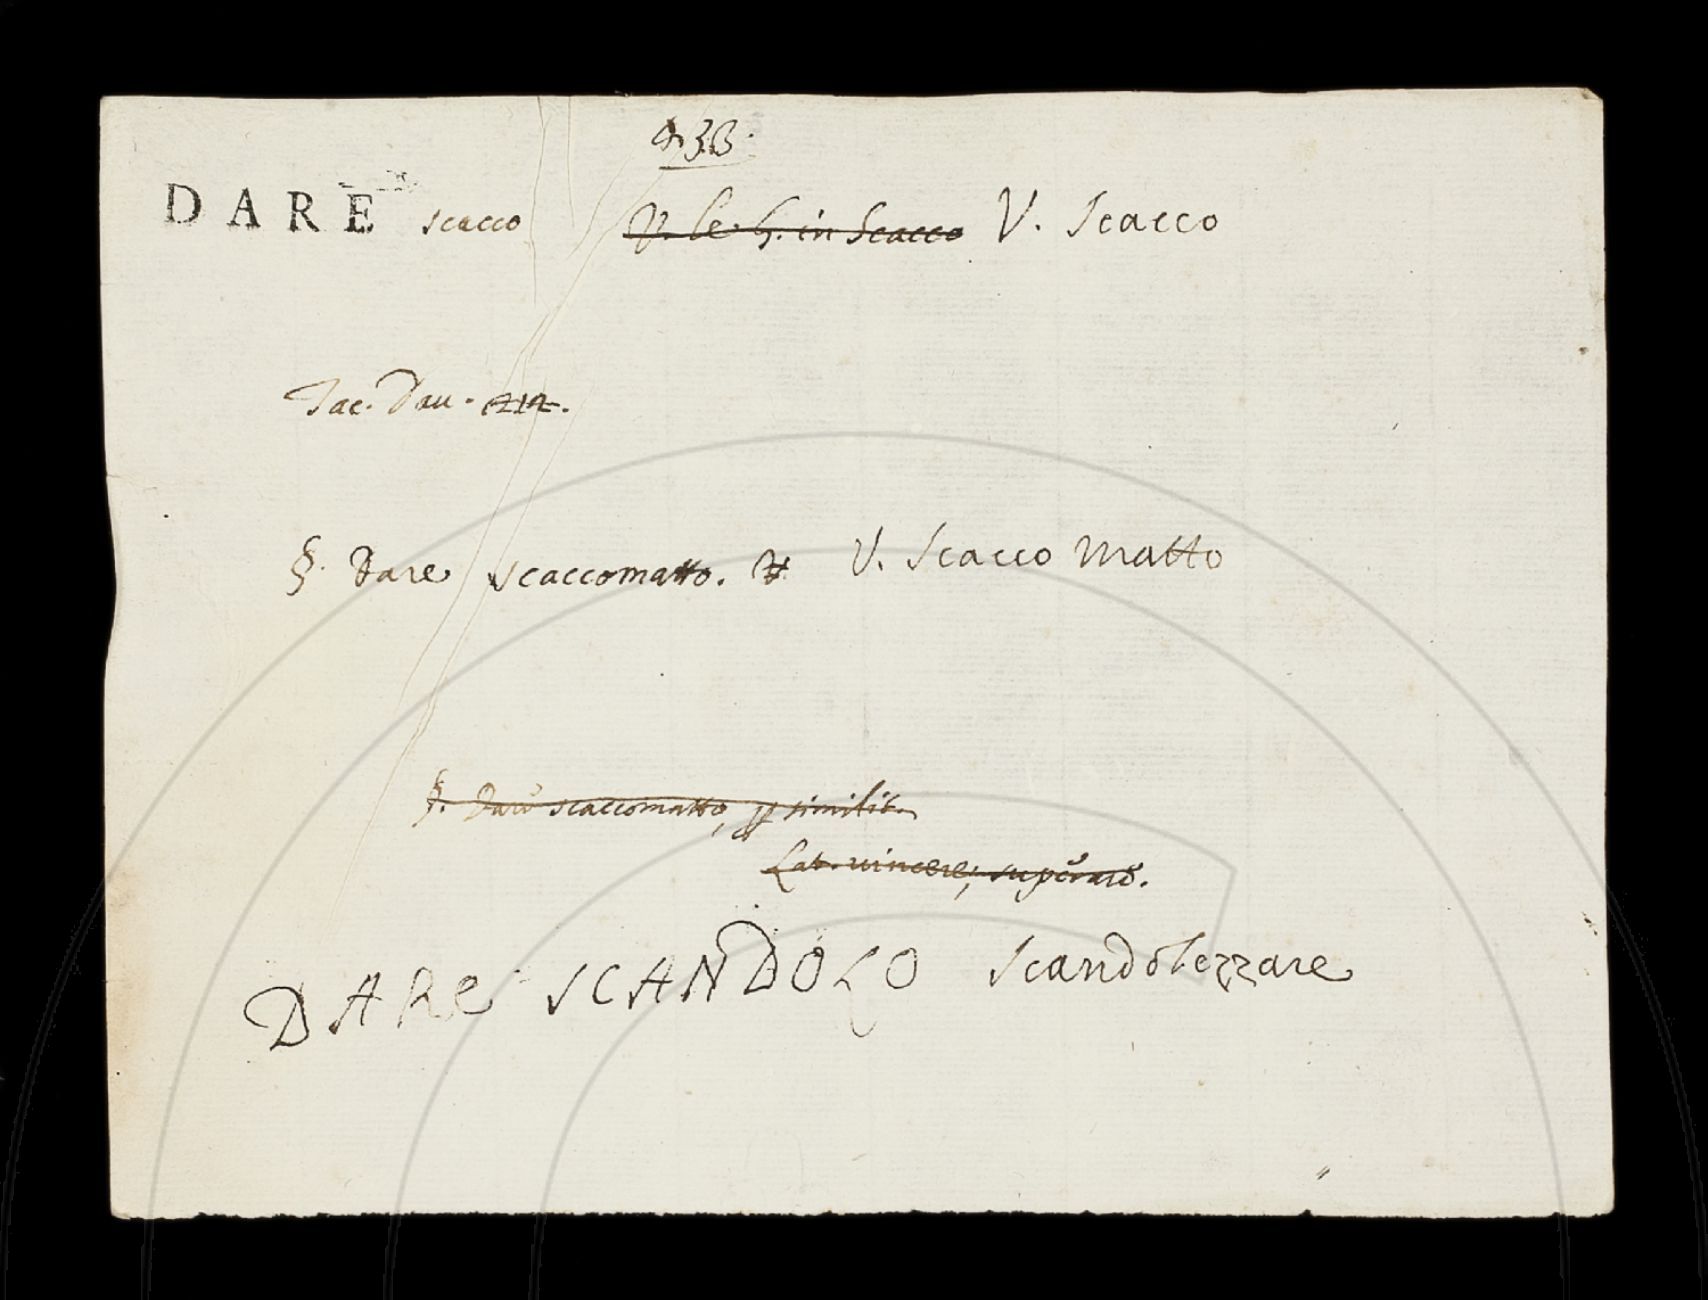 933.
DARE scacco V. le §. in Scacco V. Scacco
Tac. Dav. 212.
§. Dare scaccomatto. V. V. Scacco Matto
§. Dare scaccomatto, similit.
Lat. vincere, superare.
DARE SCANDOLO Scandolezzare